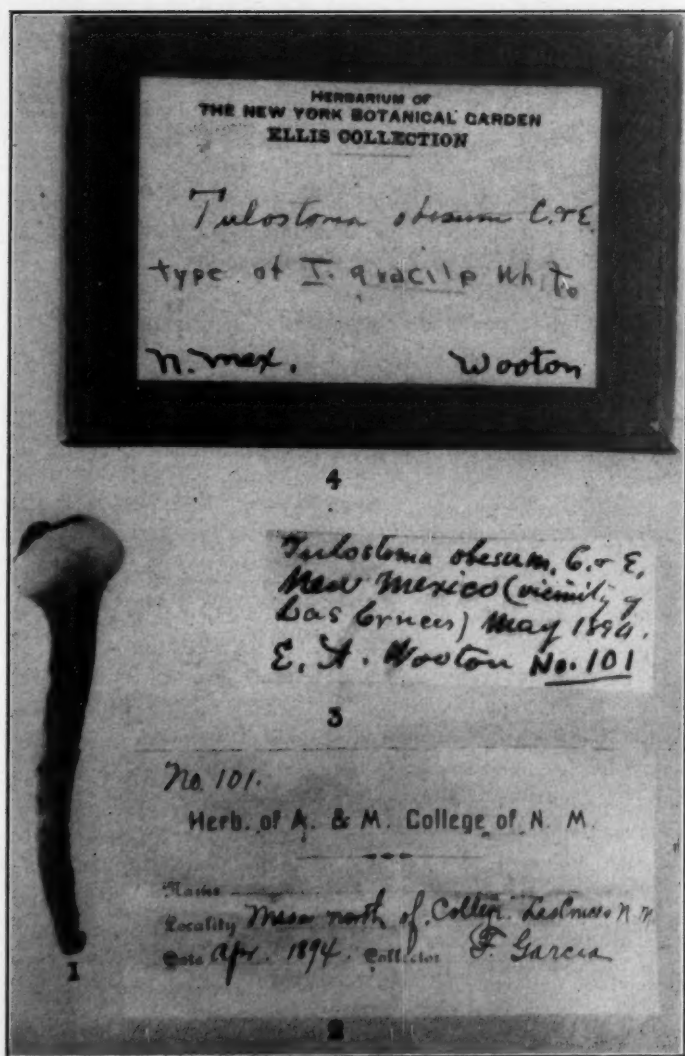 HERBARIUM OF
THE NEW YORK BOTANICAL GARDEN
ELLIS COLLECTION
Tulostoma obesum C. & E.
type of T. gracile White
N. Mex. Wooton
4
Tulostoma obesum, C. & E.
New Mexico (vicinity of
Las Cruces) May 1894.
E. O. Wooton No. 101
3
No. 101.
Herb. of A. & M. College of N. M.
Name
Locality Mesa north of College. Las Cruces N. M.
Date Apr. 1894. Collector F. Garcia
1
2